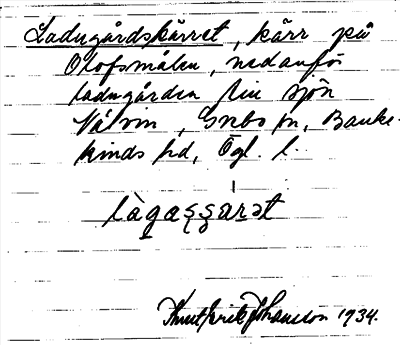 Ladugårdskärret, kärr på
Olofsmålen, nedanför
ladugården vin sjön
Våvin, Grebo sn, Banke-
kinds hd, Ögl. l.
làgaʂʂarət
Knut Erik Johansson 1934.